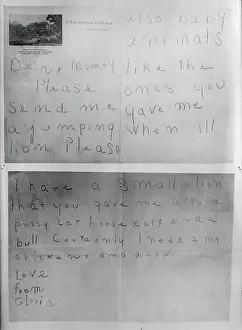 Dear Momey
Please
send me
a jumping
lion Please
also baby
animals
like the
ones you
gave me
when ill.
I have a small lion
that you gave me also a
pussy cat, horse, cats and a
bull. Certainly I need a pig
chickens and a cow
Love
from
Gloria